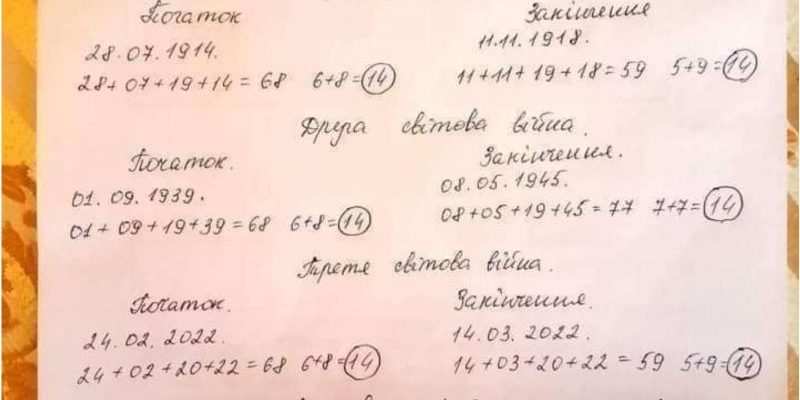 Початок Закінчення
28.07.1914. 11.11.1918.
28+07+19+14=68 6+8=14 11+11+19+18=59 5+9=14
Друга світова війна.
Початок. Закінчення.
01.09.1939. 08.05.1945.
01+09+19+39=68 6+8=14 08+05+19+45=77 7+7=14
Третя світова війна.
Початок. Закінчення.
24.02.2022. 14.03.2022.
24+02+20+22=68 6+8=14 14+03+20+22=59 5+9=14